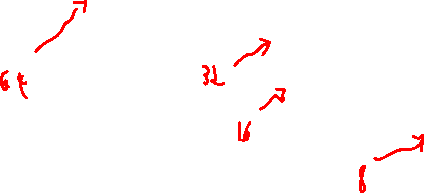 64
32
16
8